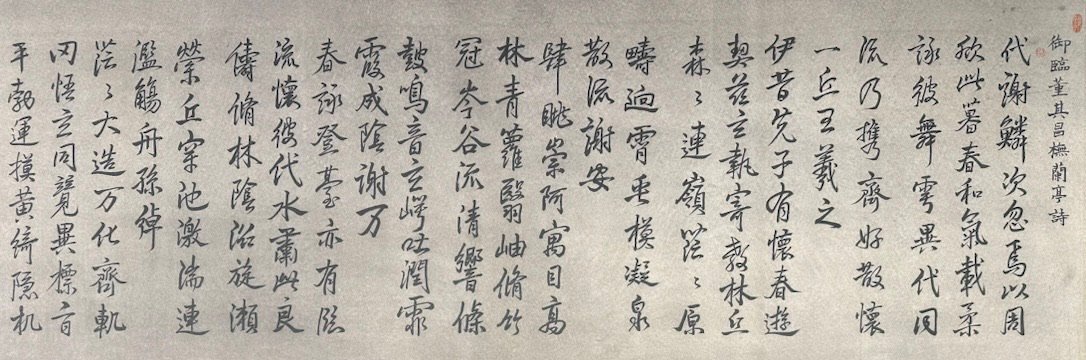 御臨董其昌橅蘭亭詩
代謝鱗次忽焉以周
欣此暮春和氣載柔
詠彼舞雩異代同
流乃攜齊好散懷
一丘王羲之
伊昔先子有懷春遊
契茲言執寄敖林丘
森々連嶺茫々原
疇逈霄垂模凝泉
散流謝安
肆眺崇阿寓目高
林青蘿翳岫脩竹
冠岑谷流清響條
鼓鳴音玄崿吐潤霏
霞成陰謝万
春詠登臺亦有臨
流懷彼伐木肅此良
儔脩林陰沼旋瀨
縈丘穿池激湍連
濫觴舟孫綽
茫々大造万化齊軌
罔悟玄同競異標旨
平勃運摸黃綺隱机